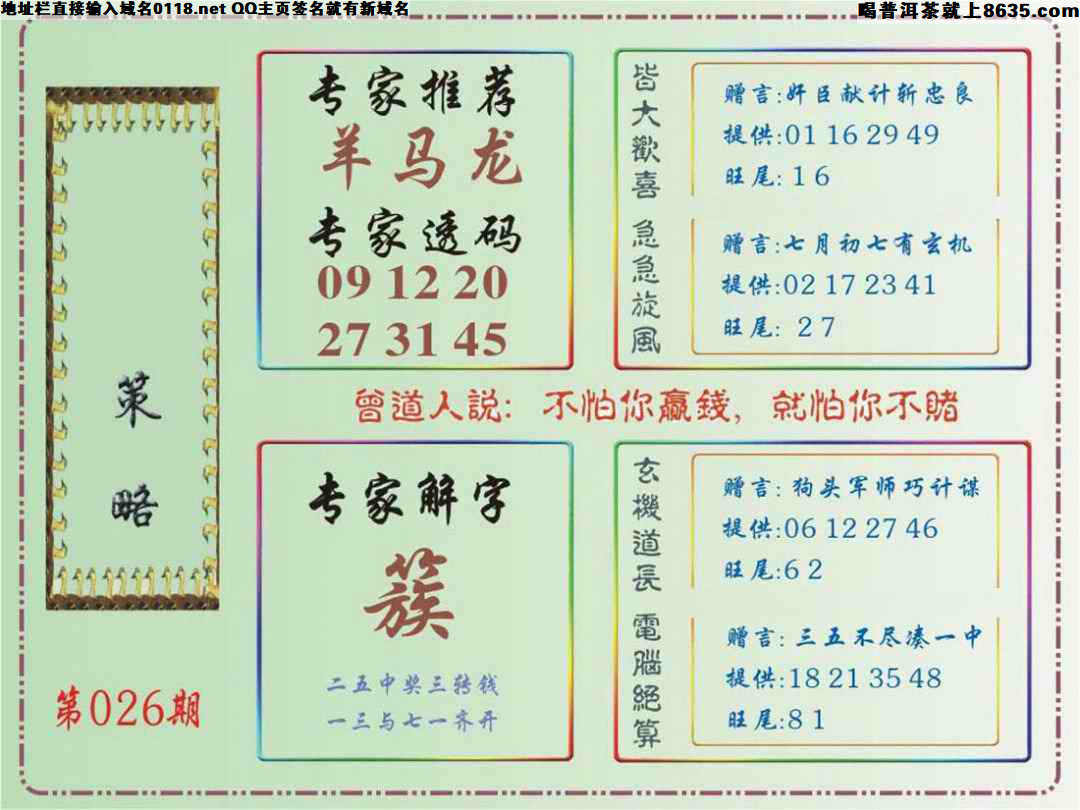 地址栏直接输入域名0118.net QQ主页签名就有新域名
喝普洱茶就上8635.com
策
略
第026期
专家推荐
羊马龙
专家透码
09 12 20
27 31 45
皆大歡喜
赠言:奸臣献计斩忠良
提供:01 16 29 49
旺尾: 1 6
急急旋風
赠言:七月初七有玄机
提供:02 17 23 41
旺尾: 2 7
曾道人説: 不怕你贏錢, 就怕你不賭
专家解字
簇
二五中奖三转钱
一三与七一齐开
玄機道長
赠言: 狗头军师巧计谋
提供:06 12 27 46
旺尾:6 2
電腦絕算
赠言: 三五不尽凑一中
提供:18 21 35 48
旺尾:8 1